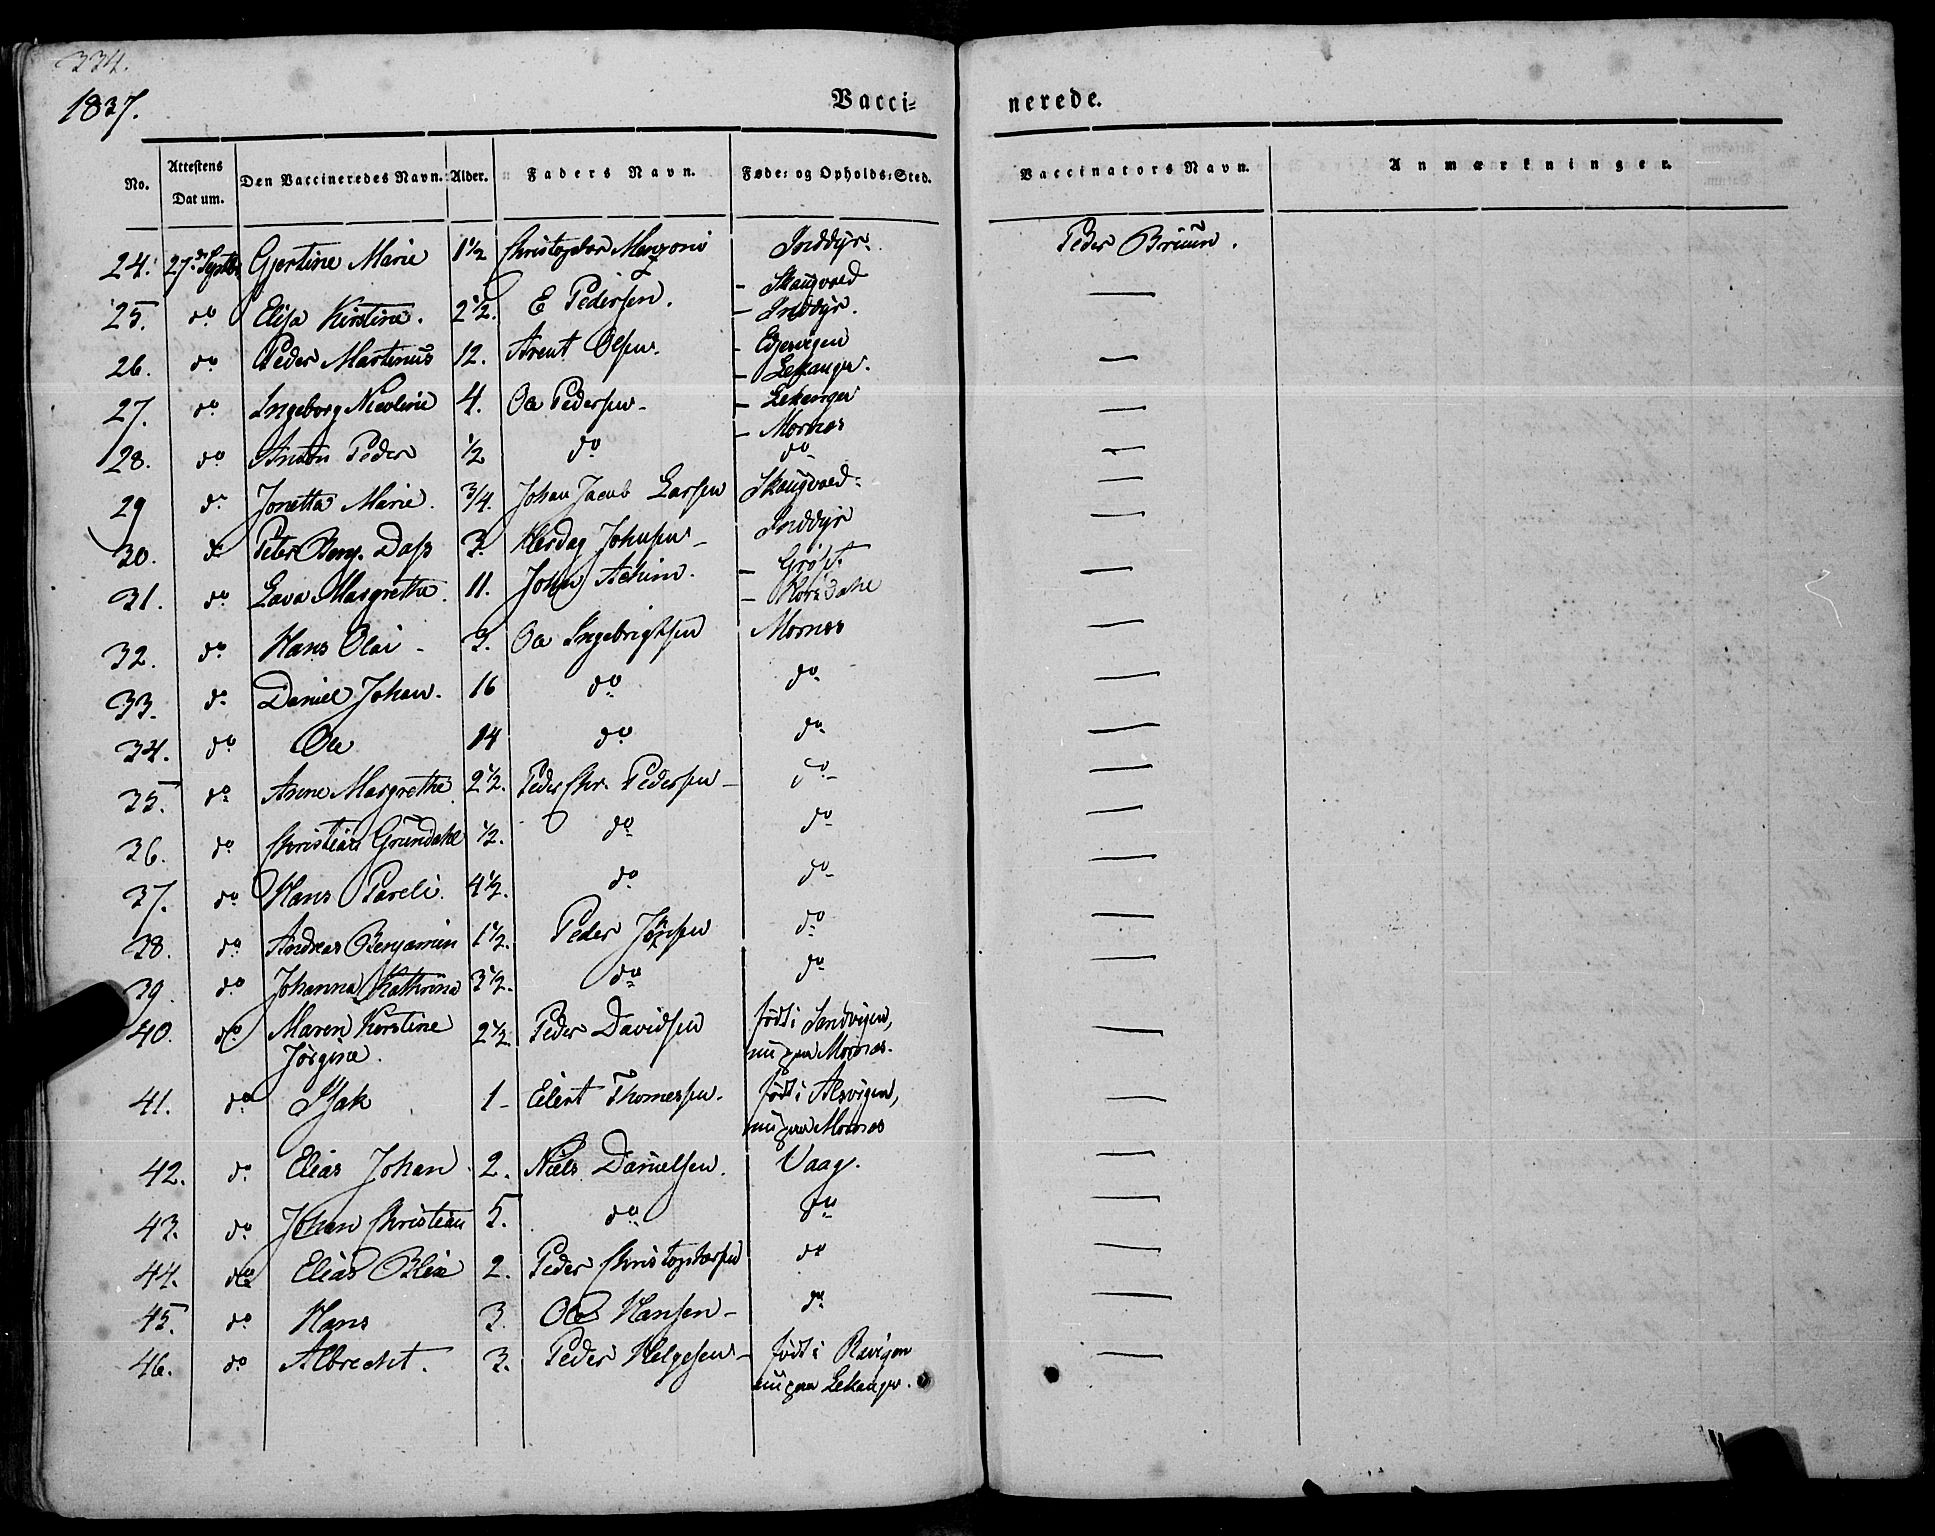 334.
1837.
Vacci=
nerede.
No. Attestens Datum. Den Vaccineredes Navn. Alder. Faders Navn. Føde= og Opholds=Sted. Vaccinators Navn. Anmærkninger.
24. 27de Septbr Gjertine Marie 1½ Christopher Inddyr. Peder Bruun.
– Skaugvold
25. do Elisa Kirstine. 2½. E Pedersen. – Inddyr. —
26. do Peder Martinus 12. Arent Olsen. – —
– Lekanger.
27. do Ingeborg Nicoline 4. Ole Pedersen – – Lekanger —
– Mornes
28. do Anton Peder ½ do do —
29 do Jonetta Marie. 3/4. Johan Jacob Larsen Skaugvold. —
30. do Peter Benj. Dass 3. Johnsen – Inddyr —
31. do Lava Margrethe. 11. John Achim. – Grøft —
–
32. do Hans Olai – 3. Ole Ingebrigtsen Mornes —
33. do Daniel Johan. 16 do do —
34. do Ole 14 do do —
35. do Anne Margrethe 2½. Peder Chr. Pedersen – do —
36. do Christian Grundahl ½. do do —
37. do Hans Pareli. 4½. do do —
38. do Andreas Benjamin 1½. Peder Jønsen do —
39. do Johanna Kathrina 3½. do do —
40. do Maren Kirstine 2½ Peder Davidsen født i Sandvigen, —
Jørgine. nu paa Mornes.
41. do Isak 1 – Eilert Thomessen. født i Alsvigen, —
nu paa Mornes
42. do Elias Johan 2. Niels Danielsen. Vaag. —
43. do Johan Christian 5. do do —
44. do Elias Blix 2. Peder Christophersen do —
45. do Hans 3. Ole Hansen – do —
46. do Albrecht. 3. Peder Helgesen – født i Ravigen —
nu paa Lekanger.